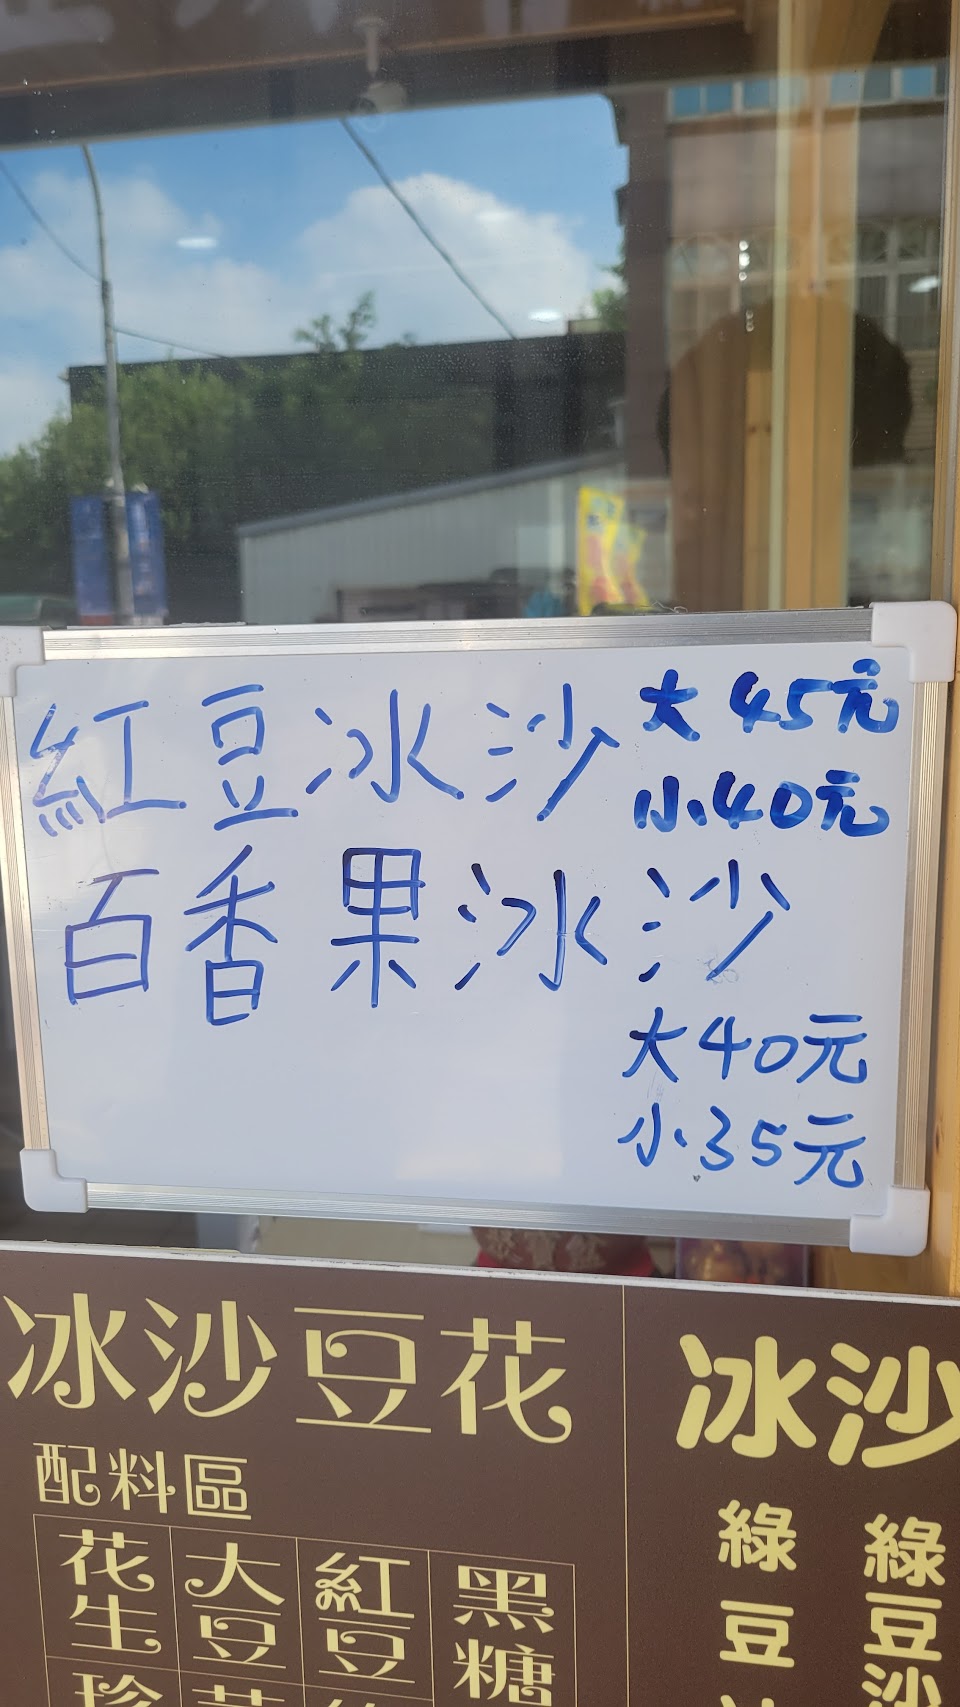 紅豆冰沙 大45元
小40元
百香果冰沙
大40元
小35元
冰沙豆花
配料區
花生 大豆 紅豆 黑糖
冰沙
綠豆 綠豆沙